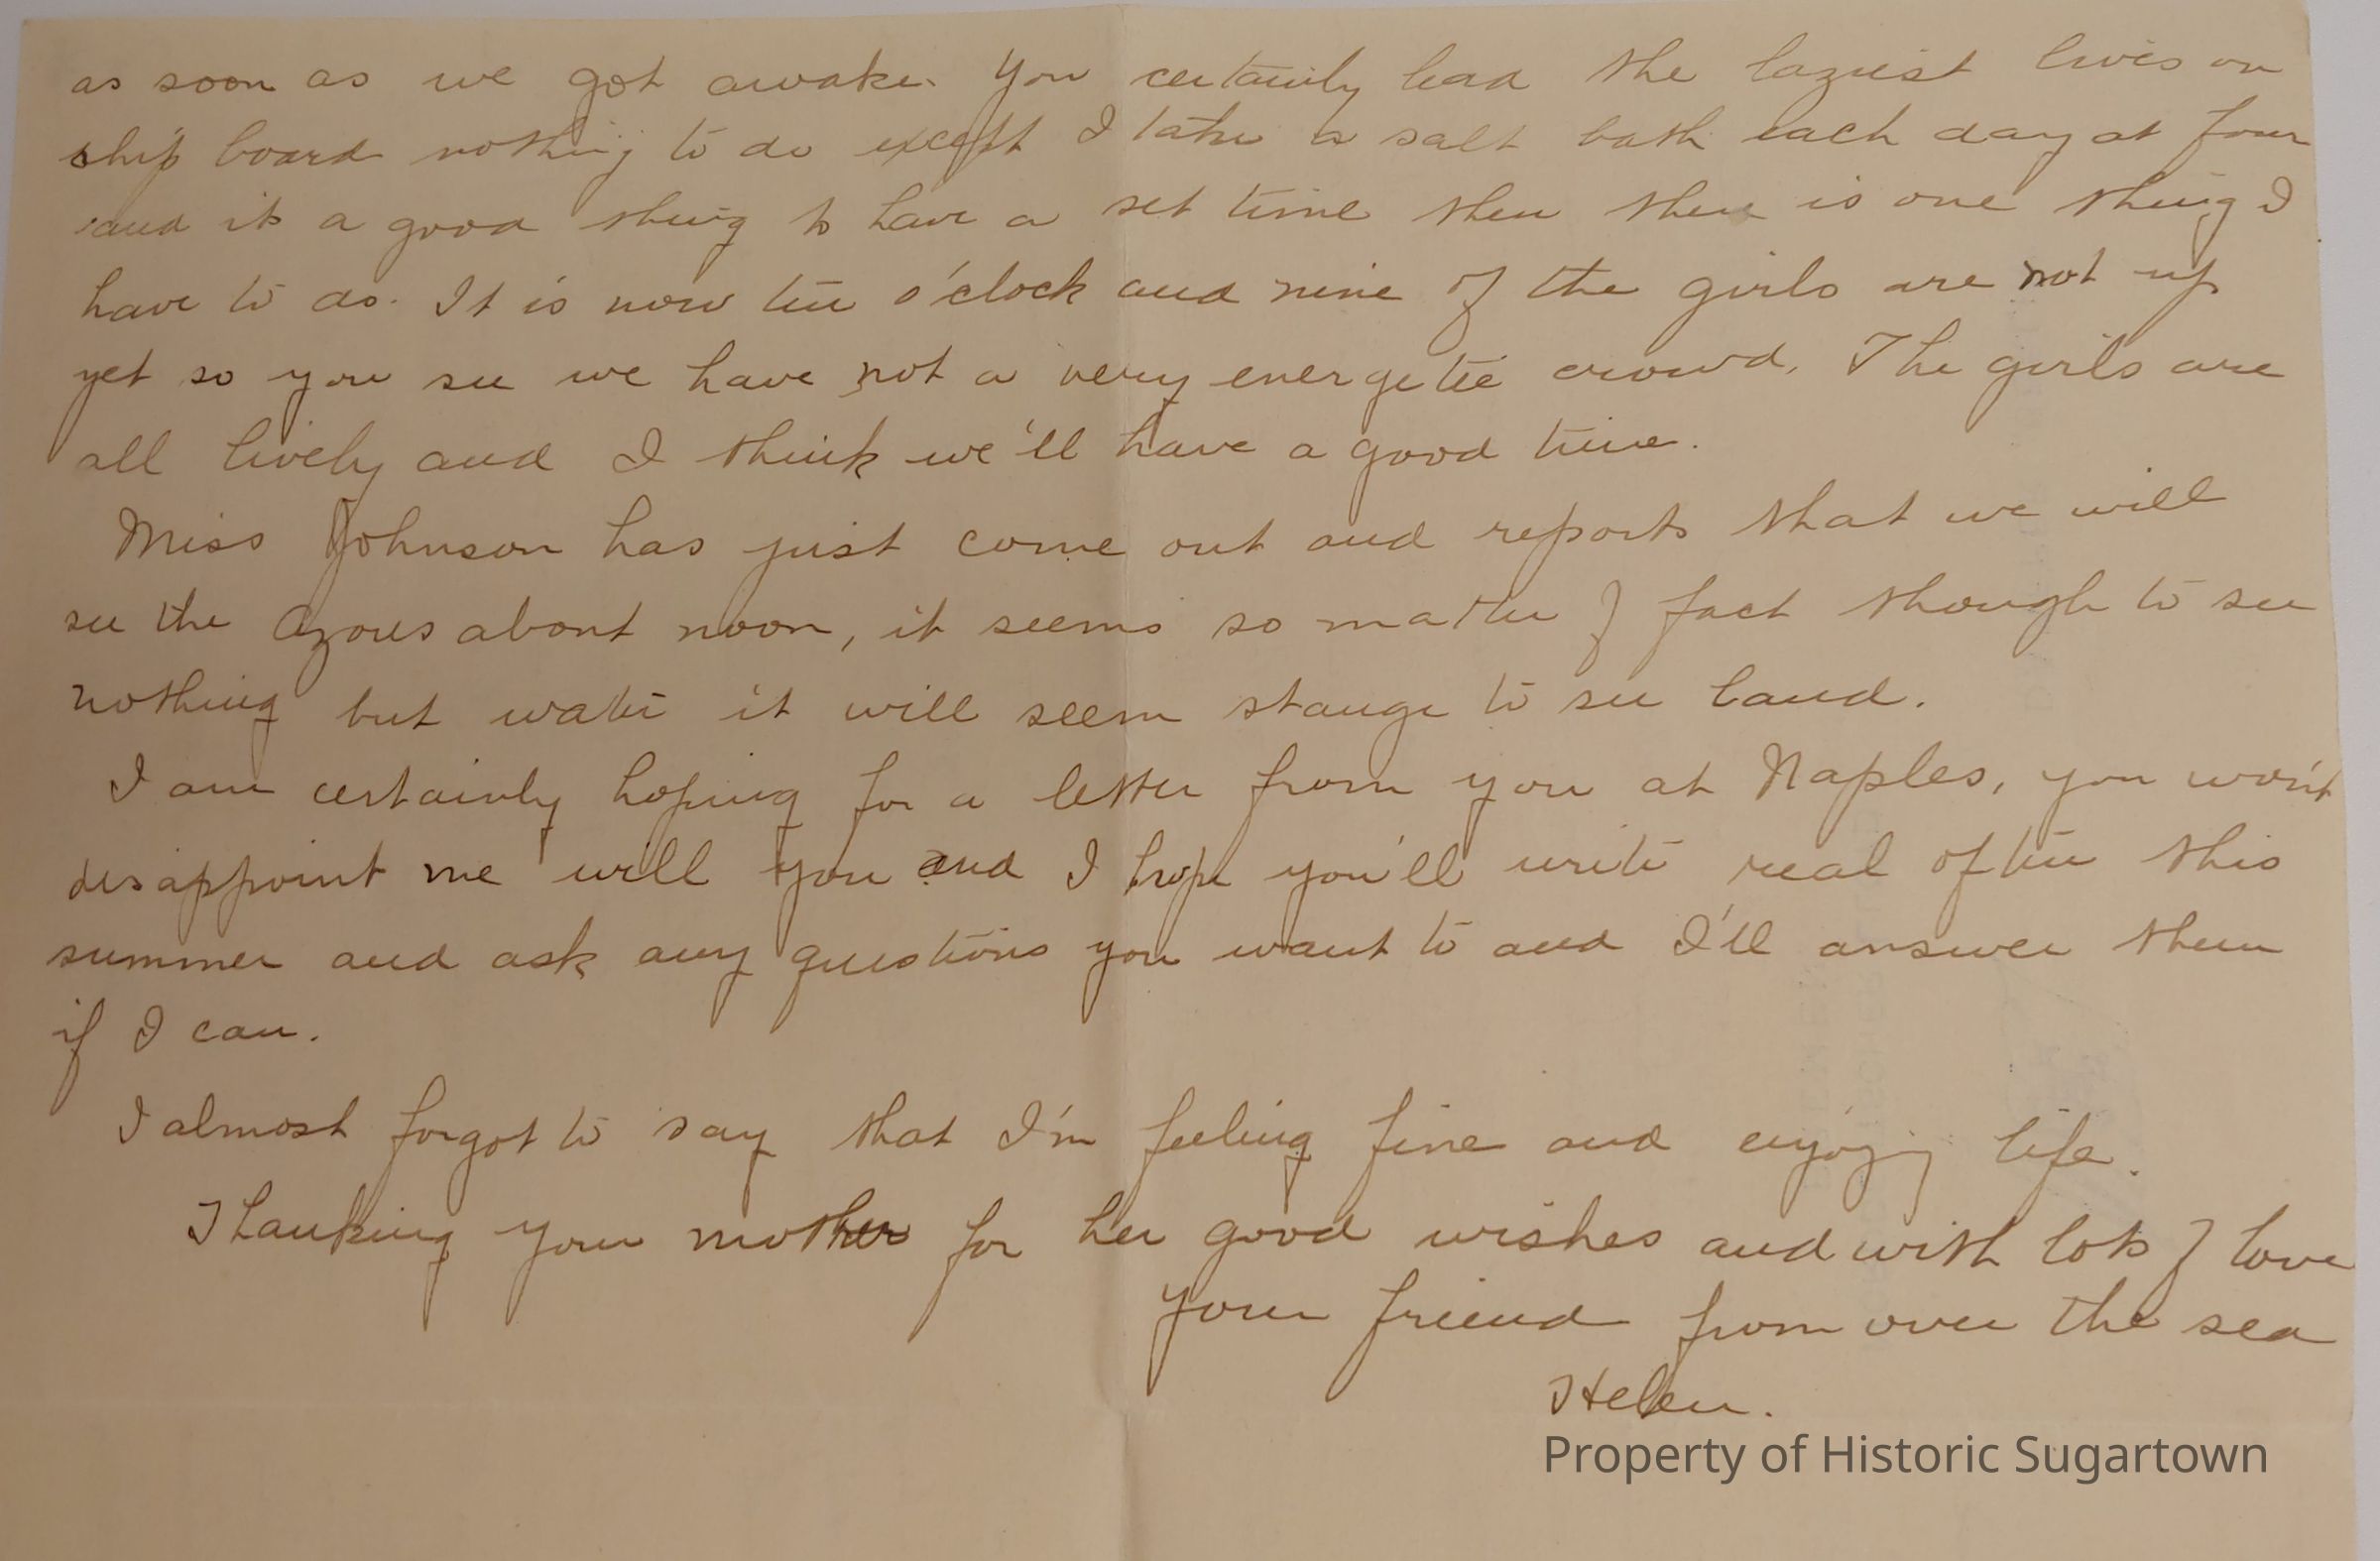 as soon as we got awake. You certainly lead the laziest lives on
ship board nothing to do except I take a salt bath each day at four
and its a good thing to have a set time then there is one thing I
have to do. It is now ten o'clock and nine of the girls are not up
yet so you see we have not a very energetic crowd. The girls are
all lively and I think we'll have a good time.
Miss Johnson has just come out and reports that we will
see the Azores about noon, it seems so matter of fact though to see
nothing but water it will seem stange to see land.
I am certainly hoping for a letter from you at Naples, you won't
disappoint me will you and I hope you'll write real often this
summer and ask any questions you want to and I'll answer them
if I can.
I almost forgot to say that I'm feeling fine and enjoying life.
Thanking your mother for her good wishes and with lots of love
your friend from over the sea
Helen.
Property of Historic Sugartown